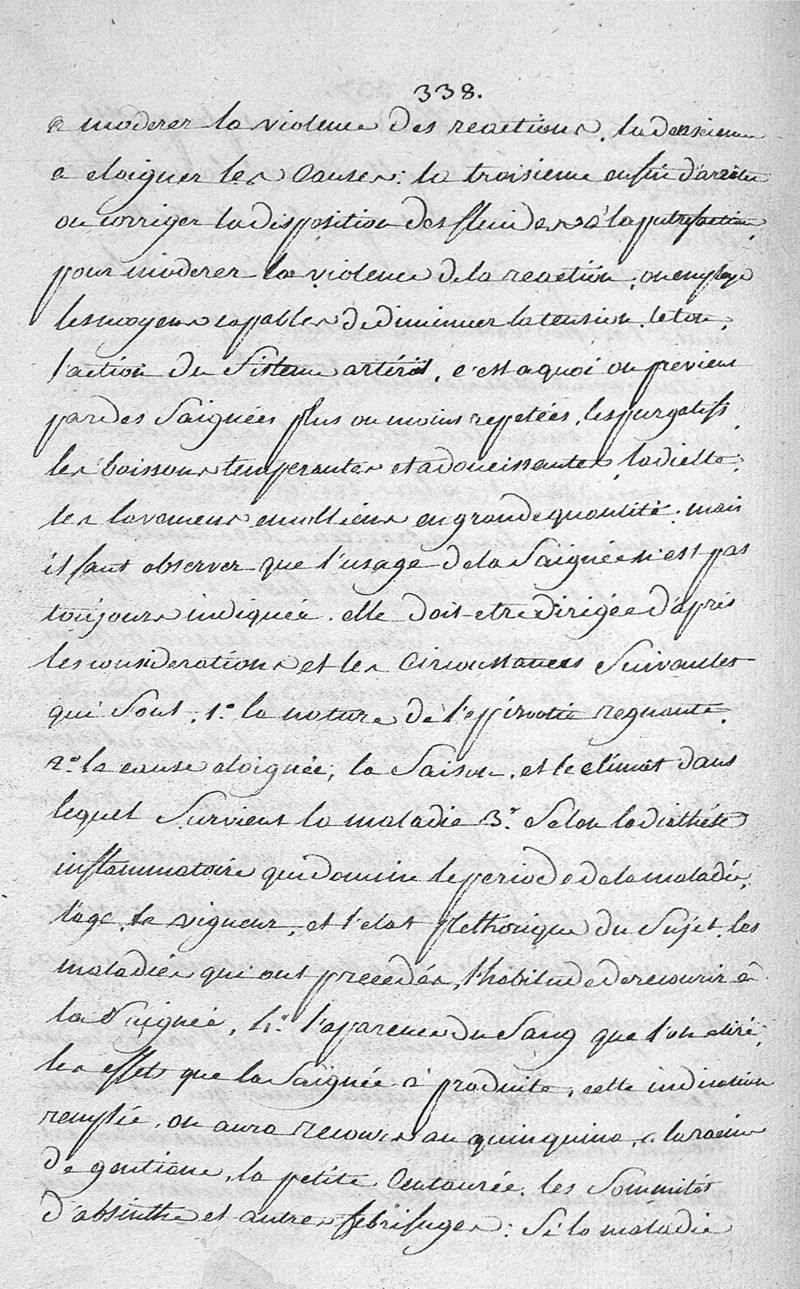 338.
a moderer la violence des reactions, la deuxieme
a eloigner les causes: la troisieme enfin d'arreter
ou corriger la disposition des fluides à la putrefaction,
pour moderer la violence de la reaction, on employe
les moyens capables de diminuer la tension, le ton,
l'action du Sisteme artériel, c'est a quoi on previent
par des Saignées plus ou moins repetées, les purgatifs,
les boissons temperantes et adoucissantes, la diette,
les lavemens emolliens en grande quantité. mais
il faut observer que l'usage de la Saignée n'est pas
toujours indiquée. elle doit etre dirigée d'après
les considerations et les Circonstances Suivantes
qui Sont, 1.° la nature de l'epizootie regnante.
2.° la cause eloignée, la Saison, et le climat dans
lequel Survient la maladie 3.° Selon la diathése
inflammatoire qui domine le periode de la maladie,
l'age, la vigueur, et l'etat Plethorique du Sujet, les
maladies qui ont precedés, l'habitude de recourir à
la Saignée, 4.° l'aparence du Sang que l'on a tiré,
les effets que la Saignée a produite, cette indication
remplie, on aura recours au quinquina, a la racine
de gentiane, la petite Centaurée, les Sommités
d'absinthe et autres febrifuges: Si la maladie